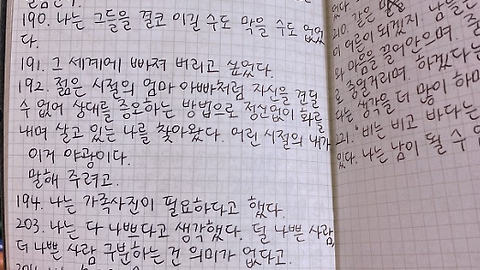 190. 나는 그들을 결코 이길 수도 막을 수도 없었
다.
191. 그 세계에 빠져 버리고 싶었다.
192. 젊은 시절의 엄마 아빠처럼 자신을 견딜
수 없어 상대를 증오하는 방법으로 정신없이 화를
내며 살고 있는 나를 찾아왔다. 어린 시절의 내가
이거 야광이다.
말해 주려고.
194. 나는 가족사진이 필요하다고 했다.
203. 나는 다 나쁘다고 생각했다. 덜 나쁜 사람
더 나쁜 사람 구분하는 건 의미가 없다고.
있다.
210. 같은
이 어른이 되겠지. 남들은
와 마음을 끌어안으며.
로 중얼거리며. 하겠다는
나는 생각을 더 많이 하며
221. '비는 비고 바다는
있다. 나는 남이 될 수